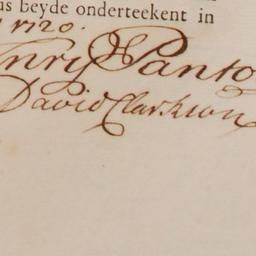 us beyde onderteekent in
1720.
enry Panto
David Clarkson